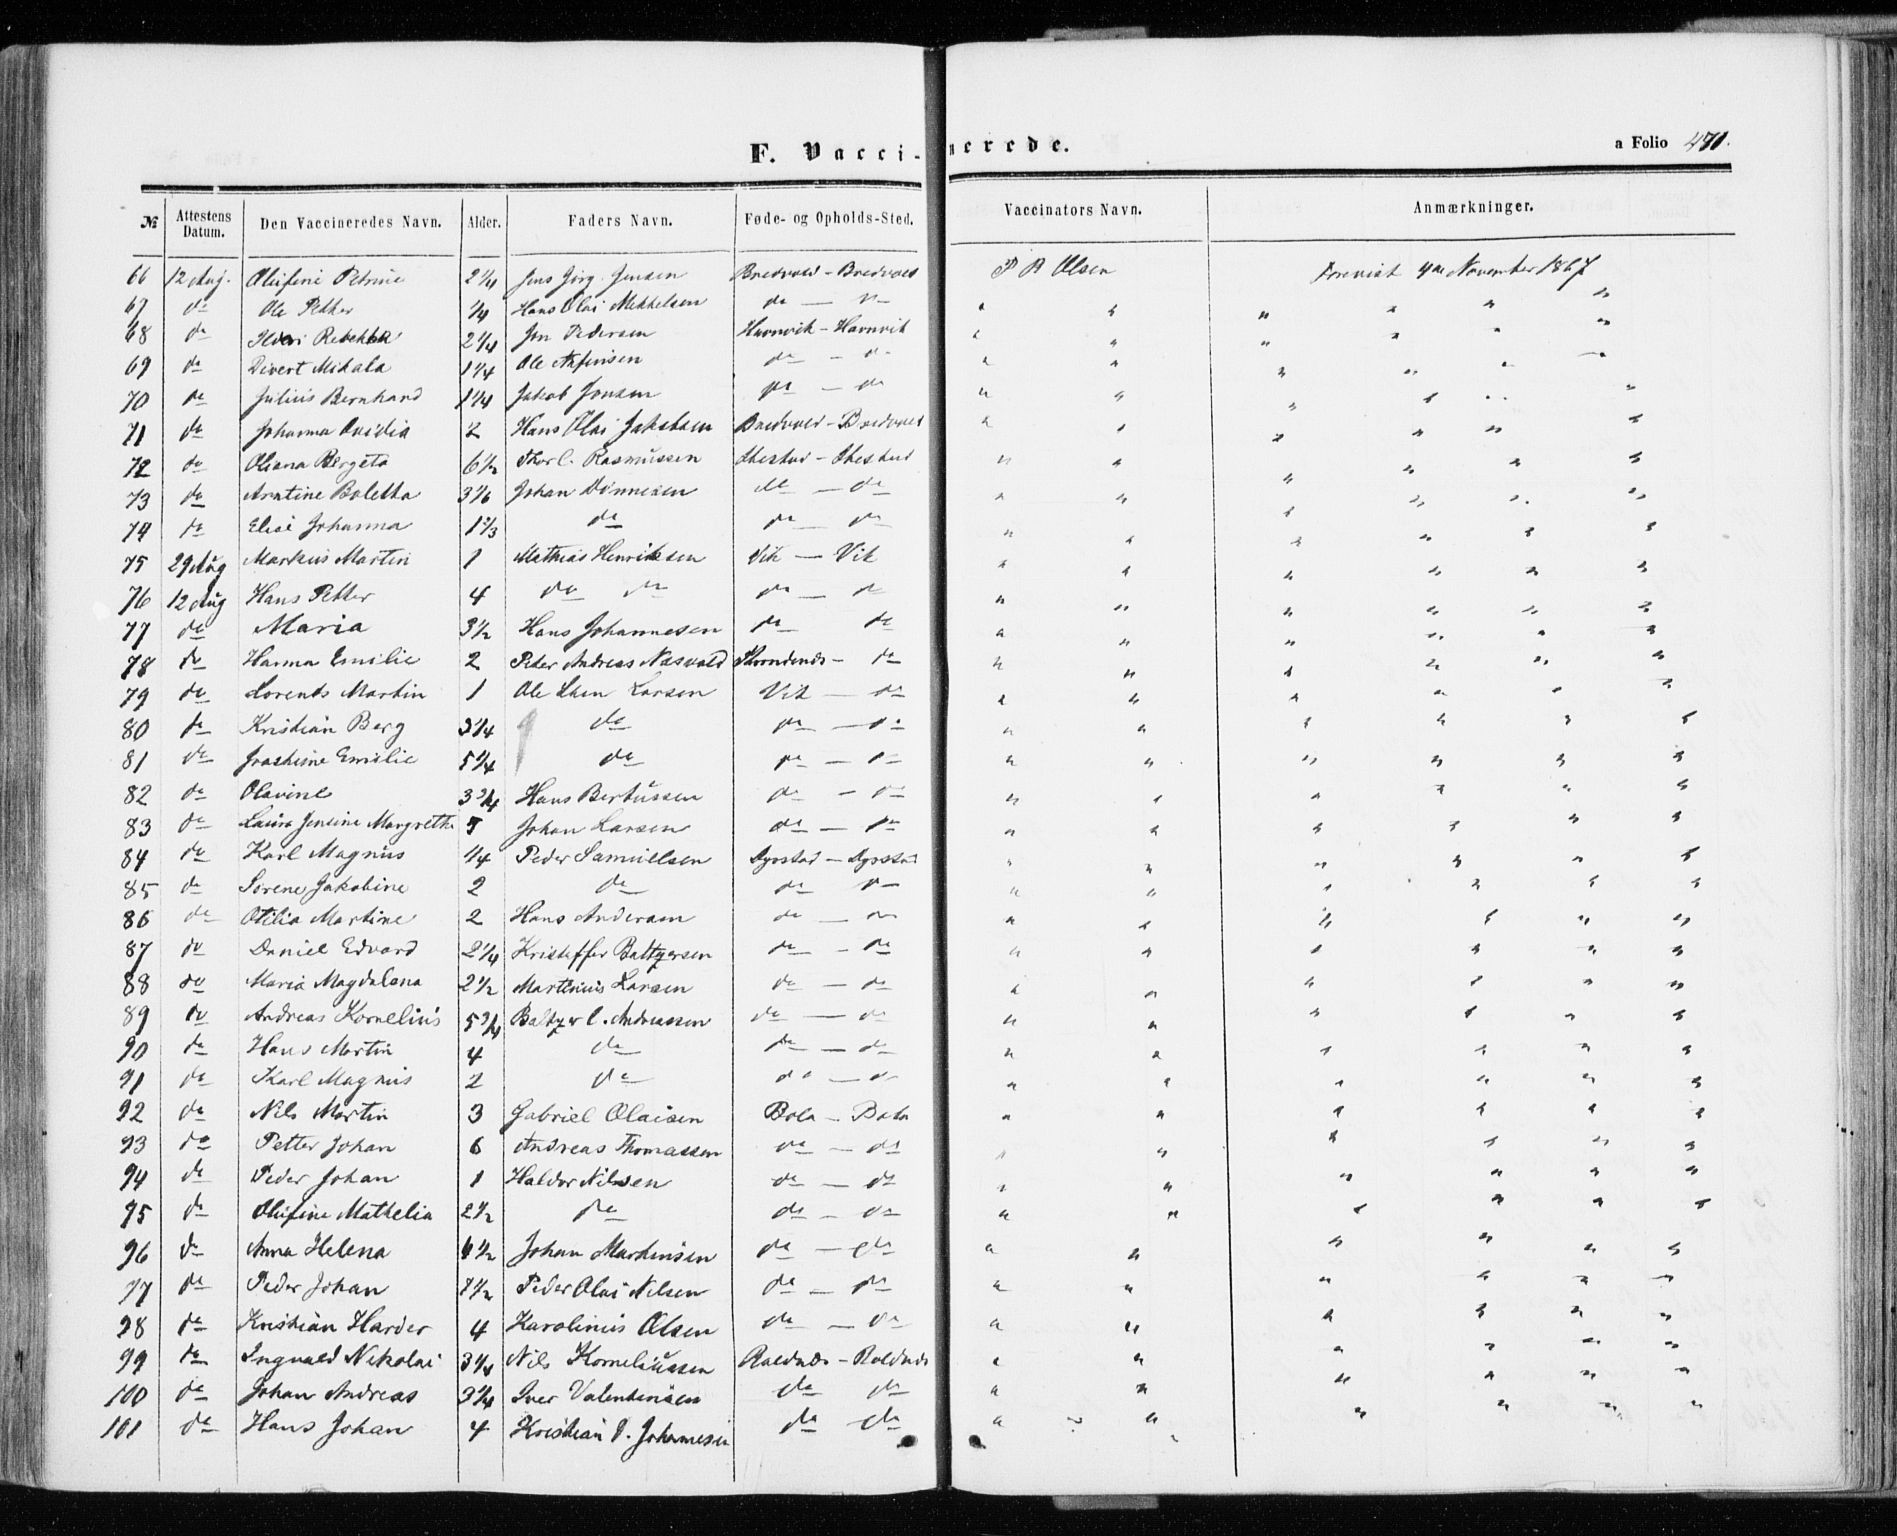 F. Vaccinerede.
a Folio 471.
№ Attestens Datum. Den Vaccineredes Navn. Alder. Faders Navn. Føde- og Opholds-Sted. Vaccinators Navn. Anmærkninger.
66 12 Aug. Olufine Petrine 2 1/4 Jens Jörg. Jensen Bredvold - Bredvold P B Olsen November 1867
67 do Ole Petter 1/4 Hans Olai Mekkelsen do — " " " " " " "
68 do Rebekka 2 1/4 Jon Pedersen Havnvik - Havnvik " " " " " "
69 do Divert Mikala 1 1/4 Ole do - do " " " " " "
70 do Julius Bernhard 1 1/4 Jakob Jonsen do - do " " " " " "
71 do Johanna Ovidia 2 Hans Olai Jakobsen Bredvold - Bredvold " " " " " "
72 do Oliana Bergeta 6 1/2 Thor C. Rasmussen Ibestad - Ibestad " " " " " "
73 do Arntine Boletta 3 1/6 Johan Dönnesen do - do " " " " " "
74 do Elise Johanna 1 2/3 do do - do " " " " " "
75 29 Aug Markus Martin 1 Mathias Henriksen Vik - Vik " " " " " "
76 12 Aug Hans Petter 4 do do do - do " " " " " "
77 do Maria 3 1/2 Hans Johannesen do do " " " " " "
78 do Hanna Emilie 2 Peter Andreas Nasvold - do " " " " " "
79 do Lorents Martin 1 Ole Larsen Vik - do " " " " " "
80 do Kristian Berg 3 1/4 do do - do " " " " " "
81 do Emilie 5 1/4 do do - do " " " " " "
82 do Olavine 3 3/4 Hans Bertussen do - do " " " " " "
83 do Laura Jensine Margrethe 5 Johan Larsen do - do " " " " " "
84 do Karl Magnus 1/4 Peder Samuelsen Dyrstad - Dyrstad " " " " " "
85 do Sörene Jakobine 2 do do do " " " " " "
86 do Otilia Martine 2 Hans Andersen do - do " " " " " "
87 do Daniel Edvard 2 1/4 Kristoffer Baltzersen do - do " " " " " "
88 do Maria Magdalena 2 1/2 Martinius Larsen do - do " " " " " "
89 do Andreas Kornelius 5 3/4 Baltzer C. Andreassen do - do " " " " " "
90 do Hans Martin 4 do do - do " " " " " "
91 do Karl Magnus 2 do do - do " " " " " "
92 do Nils Martin 3 Gabriel Olaisen Bola - Bola " " " " " "
93 do Petter Johan 6 Andreas Thomassen do - do " " " " " "
94 do Peder Johan 1 Haldor Nilsen do - do " " " " " "
95 do Olufine Mathelia 2 1/2 do do - do " " " " " "
96 do Anna Helena Johan Martinsen do - do " " " " " "
97 do Peder Johan 1 1/2 Peder Olai Nilsen do - do " " " " " "
98 do Kristian Harder 4 Karolinus Olsen do - do " " " " " "
99 do Ingvald Nikolai 3 1/4 Nils Korneliussen Roldnæs - Roldnæs " " " " " "
100 do Johan Andreas 3 1/4 Iver Valentinsen do do " " " " " "
101 do Hans Johan 4 Kristian Johannesen do do " " " " " "